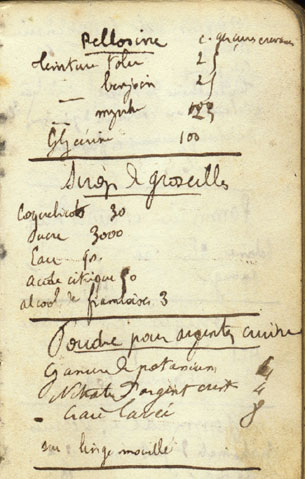 Pellosine c. gerçures crevasses
teinture Tolu 2
— benjoin 2
— myrrhe
Glycérine 100
Sirop de groseilles
Coquelicots 30
Sucre 3000
Eau
acide citrique 50
alcool de framboises 3
Poudre pour argenter cuivre
Cyanure de potassium
Nitrate d'argent crist 4
— Craie lavée 8
sur linge mouillé